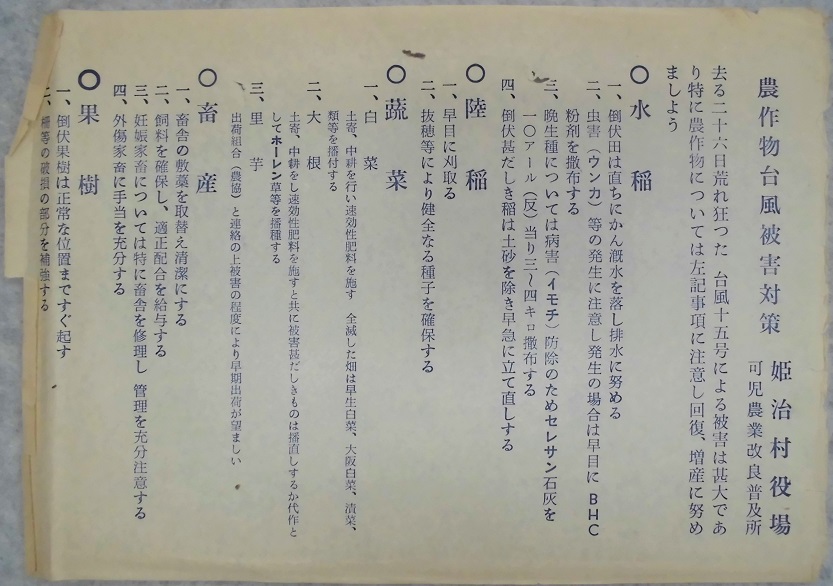 農作物台風被害対策
姫治村役場
可児農業改良普及所
去る二十六日荒れ狂つた　台風十五号による被害は甚大であ
り特に農作物については左記事項に注意し回復、増産に努め
ましよう
〇水稲
一、倒伏田は直ちにかん漑水を落し排水に努める
二、虫害（ウンカ）等の発生に注意し発生の場合は早目にＢＨＣ
粉剤を撒布する
三、晩生種については病害（イモチ）防除のためセレサン石灰を
一〇アール（反）当り三〜四キロ撒布する
四、倒伏甚だしき稲は土砂を除き早急に立て直しする
〇陸稲
一、早目に刈取る
二、抜穂等により健全なる種子を確保する
〇蔬菜
一、白菜
土寄、中耕を行い速効性肥料を施す　全滅した畑は早生白菜、大阪白菜、漬菜、
類等を播付する
二、大根
土寄、中耕をし速効性肥料を施すと共に被害甚だしきものは播直しするか代作と
してホーレン草等を播種する
三、里芋
出荷組合（農協）と連絡の上被害の程度により早期出荷が望ましい
〇畜産
一、畜舎の敷藁を取替え清潔にする
二、飼料を確保し、適正配合を給与する
三、妊娠家畜については特に畜舎を修理し　管理を充分注意する
四、外傷家畜に手当を充分する
〇果樹
一、倒伏果樹は正常な位置まですぐ起す
二、柵等の破損の部分を補強する